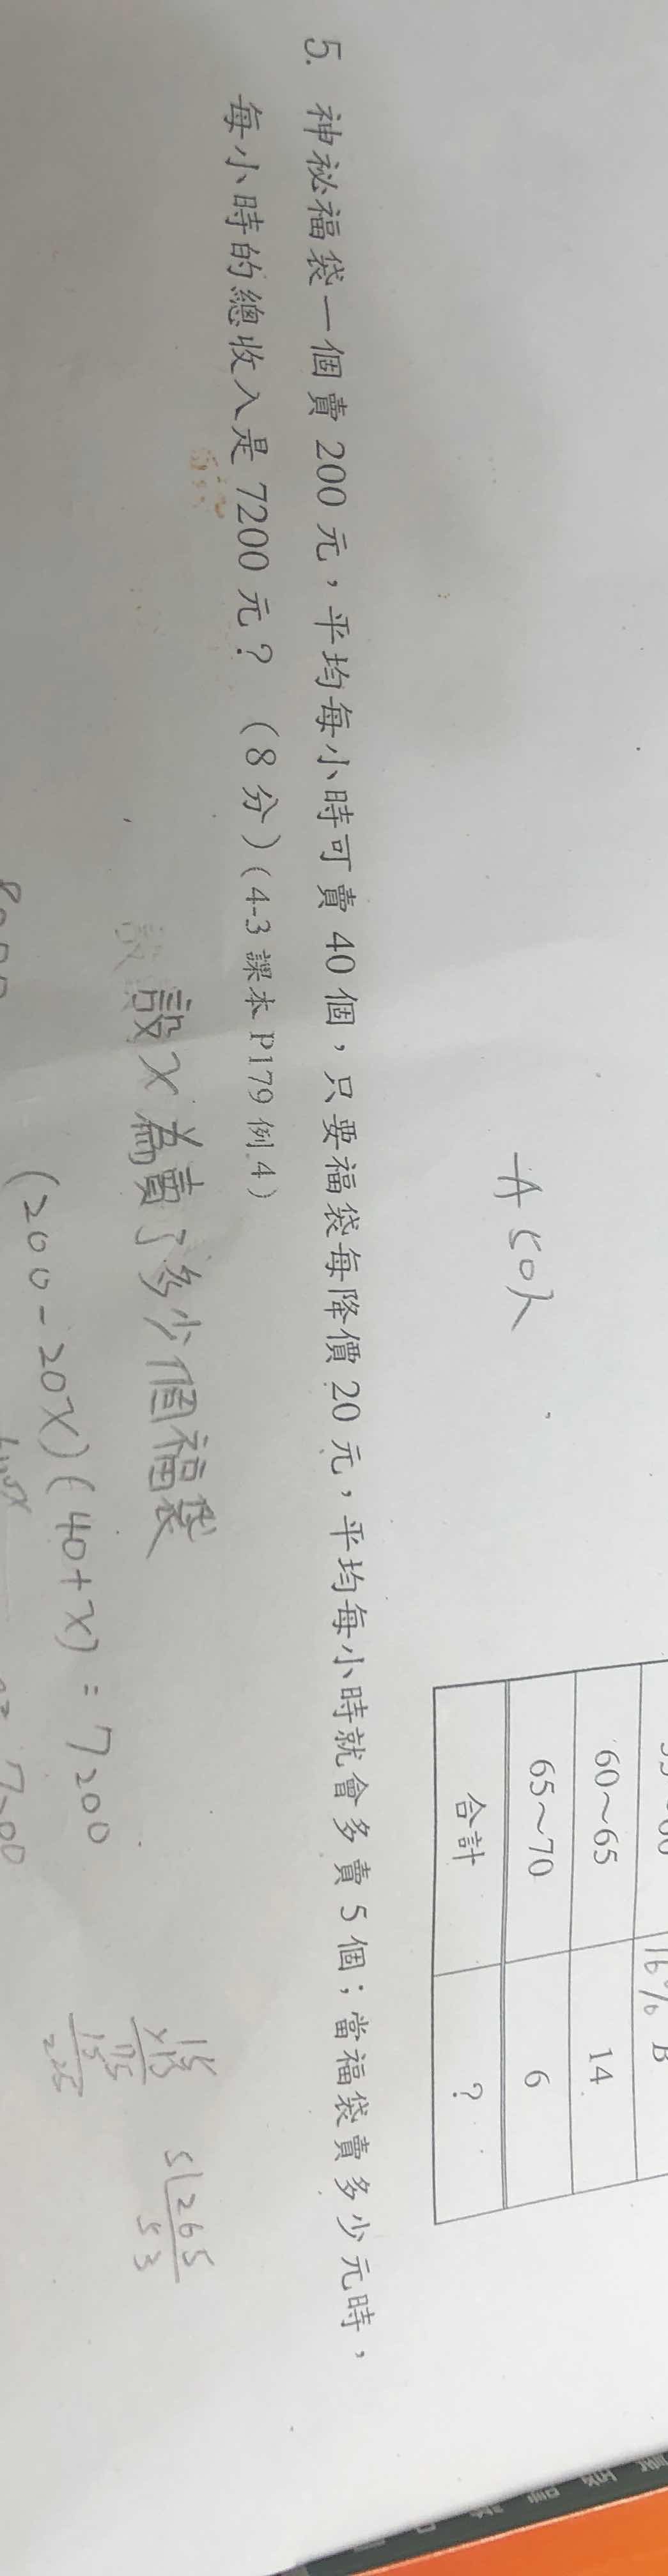 16% B
60～65 14
65～70 6
合計 ?
A 50人
5. 神祕福袋一個賣 200 元，平均每小時可賣 40 個，只要福袋每降價 20 元，平均每小時就會多賣 5 個；當福袋賣多少元時，
每小時的總收入是 7200 元？（8 分）（4-3 課本 P179 例 4）
設 x 為賣了多少個福袋
(200-20x)(40+x)=7200
15
×15
75
15
225
5 265
53